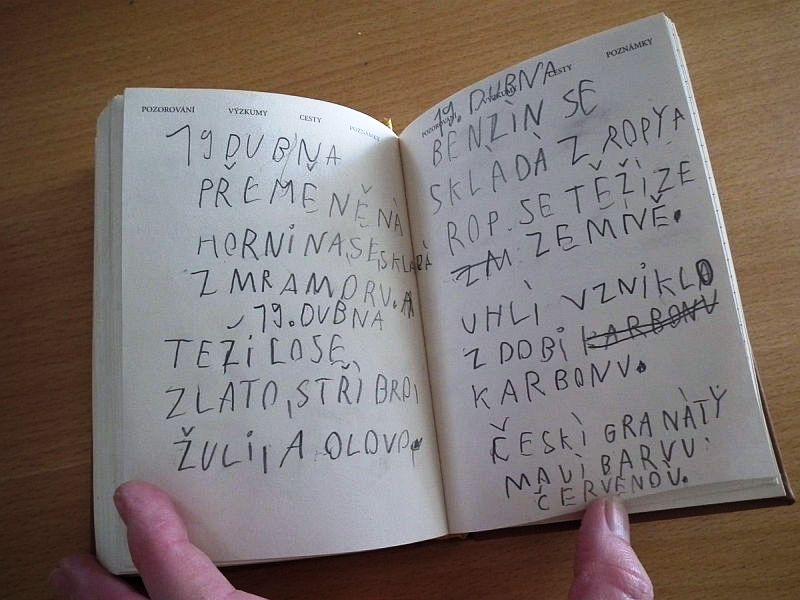 POZOROVÁNÍ VÝZKUMY CESTY POZNÁMKY
19 DUBNA
PŘEMĚNĚNÀ
HORNINA,SE,SKLADÀ
Z MRAMORU. A
19. DUBNA
TEŽÍLOSE
ZLATO, STŘÌBRO,
ŽULÍ, A OLOVO.
POZOROVÁNÍ VÝZKUMY CESTY POZNÁMKY
19. DUBNA
BENZÌN SE
SKLÀDÀ Z ROPY A
ROP. SE TĚŽÍ ZE
ZM ZEMNĚ.
UHLÌ VZNIKLO
Z DOBI KARBONU
KARBONU.
ČESKÌ GRANÀTY
MAJÌ BARVU
ČERVENOU.